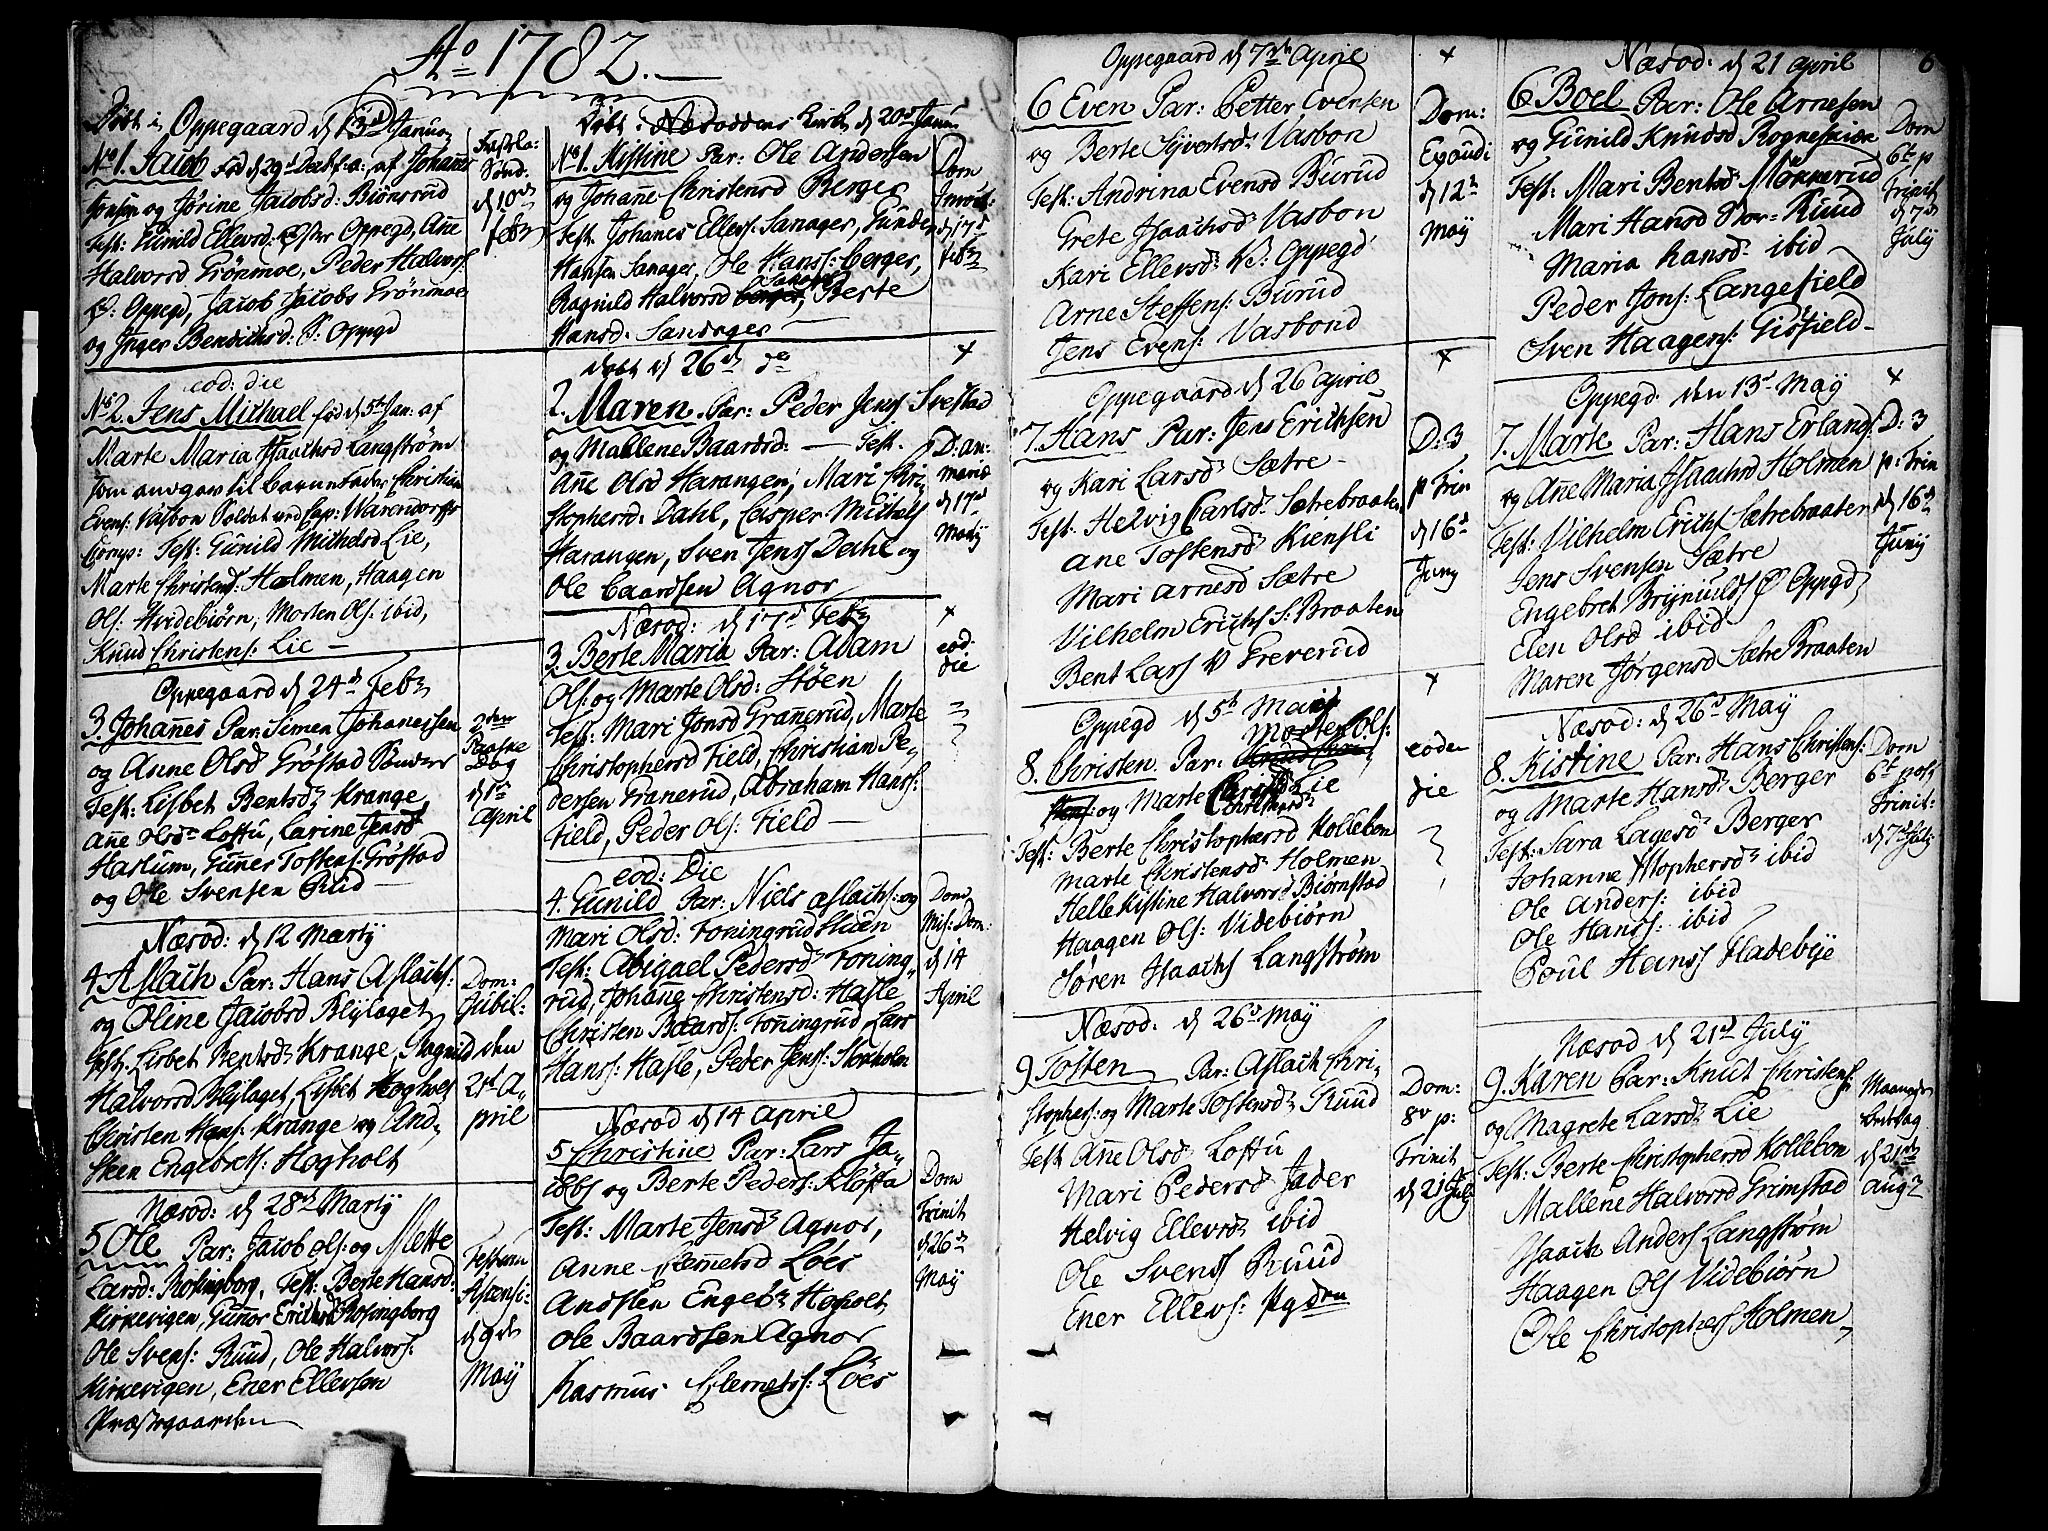 Aо 1782.
Døbt i Oppegaard d 13d Januar
No 1. Jacob fød d 29d Decbr f: a: af Johannes
Jonsen og Jørine Jacobsd: Biønsrud
Test: Gunild Ellevsd: Øster Oppegd, Ane
Halvorsd Grønmoe, Peder Halvors:
V: Oppegd, Jacob Jacobs Grønmoe
og Inger Bendichsd: S: Oppegd
Fastela:
Sønd.
d 10d
febr
eod: die
No 2. Jens Michael fød d 5t Jan: af
Marte Maria Isaachsd Langstrøm
som angav til barnefader Christian
Evens: Vasbon Soldat ved Cap: Warendorffs
Comp: Test: Gunild Michelsd Lie,
Marte Christensd: Holmen, Haagen
Ols: Hvidebiørn, Morten Ols: ibid,
Knud Christens: Lie
Oppegaard d 24d Febr
3. Johanes Par: Simen Johanessen
og Anne Olsd Grøstad Sønder
Test: Lisbet Bentsd: Krange
Ane Olsd Loftu, Karine Jensd
Haslum, Guner Tostens: Grøstad
og Ole Svensen Rud
2den
Paaske
Dag
d 1ste
April
Næsod: d 12 Martij
4 Aslach Par: Hans Aslachs:
og Oline Jacobsd Blylaget
Test: Lisbet Bentsd: Krange, Ragnild
Halvorsd Blylaget, Lisbet Hogholt
Christen Hans: Krange og And,
Steen Engebrets: Hogholt
Dom:
Jubil:
den
21d A,
pril
Næsod: d 28d Martij
5. Ole Par: Jacob Ols: og Mette
Larsd: Rosingborg, Test: Berte Hansd:
Kirkevigen, Gunor Erichsd Rosongborg
Ole Svens: Ruud, Ole Halvors:
Kirkevigen, Ener Ellevsen
Præstegaarden
Festum
Ascensi:
d 9de
Maÿ
Døbt i Næsoddens Kirke d 20d Janu
No 1. Kistine Par: Ole Andersen
og Johane Christensd Berger
Test. Johanes Ellevs: Sanager, Gunder
Hansen Sanager, Ole Hans: Berger,
Ragnild Halvorsd Sanager, Berte
Hansd: Sandager
Dom
Invoc:
d 17d
febr
Døbt d 26d do
2. Maren. Par: Peder Jenss Svestad
og Mallene Baardsd: — Test.
Ane Olsd Harangen, Mari Chri
stophersd: Dahl, Casper Michels
Harangen, Sven Jenss Dahl og
Ole Baardsen Agnor
D: An:
d 17d
Næsod: d 17d Febr
3. Berte Maria Par: Adam
Ols: og Marte Olsd: Støen
Test: Mari Jonsd Granerud, Marte
Christophersd Field, Christian Pe,
dersen Granerud, Abraham Hanss:
Field, Peder Ols: Field
eod
die
eod: Die
4. Gunild Par: Niels Aslachs: og
Mari Olsd: Toningrud Stuen
Test: Abigael Pedersd: Toning,
rud, Johane Christensd: Hasle
Christen Baards: Toningrud, Lars
Hanss: Hasle, Peder Jens: Storholm
Dom
Mis: Dom:
d 14
April
Næsod d 14 April
5 Christine Par: Lars Ja,
cobs og Berte Peders: Kløfta
Test: Marte Jensd: Agnor,
Anne Clemetsd Løes
Andsten Engeb: Hogholt
Ole Baardsen Agnor
Rasmus Clemets: Løes
Dom
Trinit
d 26d
Maÿ
Oppegaard d 7de April
6 Even Par: Petter Evensen
og Berte Sÿvertsd: Vasbon
Test: Andrina Evensd Burud
Grete Isaachsd: Vasbon
Kari Ellevsd: V: Oppegd
Arne Steffens: Burud
Jens Evens: Vasbond
Dom:
Exaudi
d 12t
Maÿ
Oppegaard d 26 April
7. Hans Par: Jens Erichsen
og Kari Larsd: Sætre
Test: Helvig Carlsd: Sætrebraaten
Ane Tostensd: Kiensli
Mari Arnesd Sætre
Vilhelm Erichs S: Braaten
Bent Lars V Greverud
D: 3
p Trin
d 16d
Juny
Oppegd d 5t Maÿ
8. Christen Par: Morten Ols:
og Marte Christensd: Lie
Test: Berte Christophersd Kollebon
Marte Christensd: Holmen
Helle Kistine Halvorsd Biørnstad
Haagen Ols: Videbiørn
Søren Isaachs Langstrøm
eoden
die
Næsod: d 26d Maÿ
9 Tosten Par: Aslach Chri,
stophers: og Marte Tostensd: Ruud
Test Ane Olsd: Loftu
Mari Pedersd: Jader
Helvig Ellevsd: ibid
Ole Svenss Ruud
Ener Ellevs: Pgden
Dom:
8v p:
Trinit
d 21 July
Næsod: d 21 April
6
6 Boel Par: Ole Arnesen
og Gunild Knudsd Rognesmien
Test: Mari Bentsd: Mokkerud
Mari Hansd Stor=Ruud
Maria Hansd: ibid
Peder Jons: Langefield
Sven Haagens: Gisfield
Dom
6t p
Trinit
d 7d
Julÿ
Oppegd: den 13d Maÿ
7. Marte Par: Hans Erlands:
og Ane Maria Isaachsd Holmen
Test: Vilhelm Erichs Sætrebraaten
Jens Svensen Sætre
Engebret Brÿniulds Ø Oppegd,
Elen Olsd ibid
Maren Jørgensd SætreBraaten
D: 3
p: Trin
d 16d
Junÿ
Næsod: d 26d Maÿ
8. Kistine Par: Hans Christens:
og Marte Hansd: Berger
Test: Sara Lagesd: Berger
Johanne Xstophersd: ibid
Ole Anders: ibid
Ole Hanss: ibid
Poul Hanss Fladebÿe
Dom
6t post
Trinit:
d 7d Jul:
Næsod d 21d Julÿ
9. Karen Par: Knut Christens:
og Magrete Larsd: Lie
Test: Berte Christophersd Kollebon
Mallene Halvorsd Grimstad
Isaach Anders Langstrøm
Haagen Ols Videbiørn
Ole Christophers Holmen
d 21de
Aug